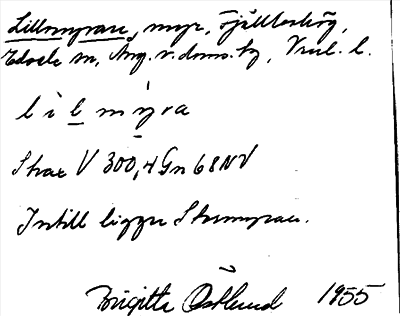 Lillmyran, myr, Fjällbohög,
Edsele sn, Ång. v. doms. hg,
l i l m y r a
Skar V 300, 4 Gn 68 NV
Intill ligger Stormyran.
Birgitta Östlund 1955